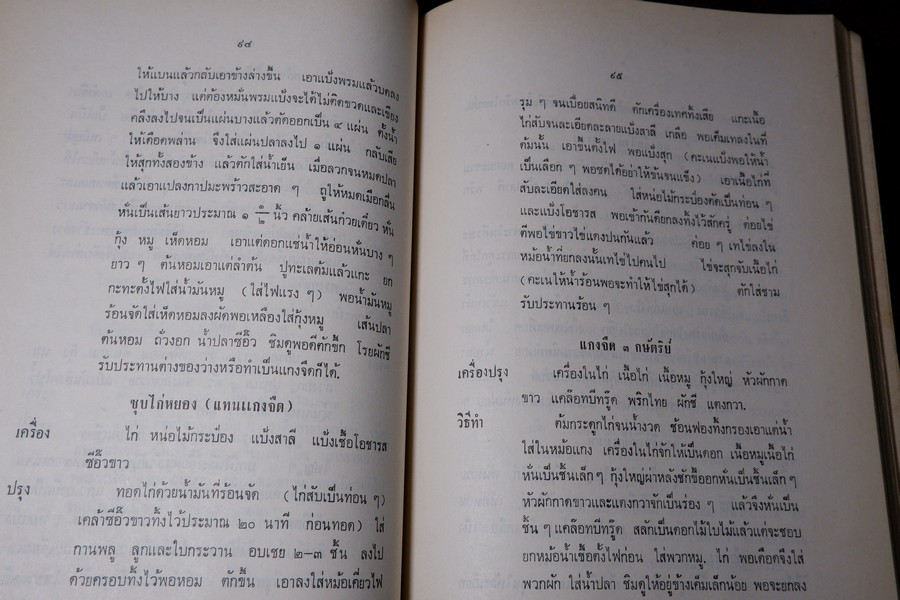 ๙๔
ให้แบนแล้วกลับเอาข้างล่างขึ้น เอาแป้งพรมแล้วบดลง
ไปให้บาง แต่ต้องหมั่นพรมแป้งจะได้ไม่ติดขวดและเขียง
คลึงลงไปจนเป็นแผ่นบางแล้วตัดออกเป็น ๔ แผ่น ตั้งน้ำ
ให้เดือดพล่าน จึงใส่แผ่นปลาลงไป ๑ แผ่น กลับเสีย
ให้สุกทั้งสองข้าง แล้วตักใส่น้ำเย็น เมื่อลวกจนหมดปลา
แล้วเอาแปลงกาบมะพร้าวสะอาด ๆ ถูให้หมดเมือกลื่น
หั่นเป็นเส้นยาวประมาณ ๑ ๑/๒ นิ้ว คล้ายเส้นก๋วยเตี๋ยว หั่น
กุ้ง หมู เห็ดหอม เอาแต่ดอกแช่น้ำให้อ่อนหั่นบาง ๆ
ยาว ๆ ต้นหอมเอาแต่ลำต้น ปูทะเลต้มแล้วแกะ ยก
กะทะตั้งไฟใส่น้ำมันหมู (ใส่ไฟแรง ๆ) พอน้ำมันหมู
ร้อนจัดใส่เห็ดหอมลงผัดพอเหลืองใส่กุ้งหมู เส้นปลา
ต้นหอม ถั่วงอก น้ำปลาซีอิ๊ว ชิมดูพอดีตักขึ้น โรยผักชี
รับประทานต่างของว่างหรือทำเป็นแกงจืดก็ได้.
ซุบไก่หยอง (แทนแกงจืด)
เครื่อง ไก่ หน่อไม้กระป๋อง แป้งสาลี แป้งเชื้อโอชารส
ซีอิ๊วขาว
ปรุง ทอดไก่ด้วยน้ำมันที่ร้อนจัด (ไก่สับเป็นท่อน ๆ)
เคล้าซีอิ๊วขาวทิ้งไว้ประมาณ ๒๐ นาที ก่อนทอด) ใส่
กานพลู ลูกและใบกระวาน อบเชย ๒-๓ ชิ้น ลงไป
ด้วยครอบทิ้งไว้พอหอม ตักขึ้น เอาลงใส่หม้อเคี่ยวไฟ
๙๕
รุม ๆ จนเปื่อยสนิทดี ตักเครื่องเทศทิ้งเสีย แกะเนื้อ
ไก่สับจนละเอียดละลายแป้งสาลี เกลือ พอเค็มเทลงในที่
ต้มนั้น เอาขึ้นตั้งไฟ พอแป้งสุก (คะเนแป้งพอให้น้ำ
เป็นเลือก ๆ พอซดได้อย่าให้ข้นจนแข็ง) เอาเนื้อไก่ที่
สับละเอียดใส่ลงคน ใส่หน่อไม้กระป๋องตัดเป็นท่อน ๆ
และแป้งโอชารส พอเข้ากันดียกลงทิ้งไว้สักครู่ ต่อยไข่
ตีพอไข่ขาวไข่แดงปนกันแล้ว ค่อย ๆ เทไข่ลงใน
หม้อน้ำที่ยกลงนั้นเทไข่ไปคนไป ไข่จะสุกจับเนื้อไก่
(คะเนให้น้ำร้อนพอจะทำให้ไข่สุกได้) ตักใส่ชาม
รับประทานร้อน ๆ
แกงจืด ๓ กษัตริย์
เครื่องปรุง เครื่องในไก่ เนื้อไก่ เนื้อหมู กุ้งใหญ่ หัวผักกาด
ขาว แคล๊อทบีทรู๊ด พริกไทย ผักชี แตงกวา.
วิธีทำ ต้มกระดูกไก่จนน้ำงวด ช้อนฟองทิ้งกรองเอาแต่น้ำ
ใส่ในหม้อแกง เครื่องในไก่จักให้เป็นดอก เนื้อหมูเนื้อไก่
หั่นเป็นชิ้นเล็ก ๆ กุ้งใหญ่ผ่าหลังชักขี้ออกหั่นเป็นชิ้นเล็ก ๆ
หัวผักกาดขาวและแตงกวาจักเป็นร่อง ๆ แล้วจึงหั่นเป็น
ชิ้น ๆ แคล๊อทบีทรู๊ด สลักเป็นดอกไม้ใบไม้แล้วแต่จะชอบ
ยกหม้อน้ำเชื้อตั้งไฟก่อน ใส่พวกหมู ไก่ พอเดือดจึงใส่
พวกผัก ใส่น้ำปลา ชิมดูให้อยู่ข้างเค็มเล็กน้อย พอจะยกลง